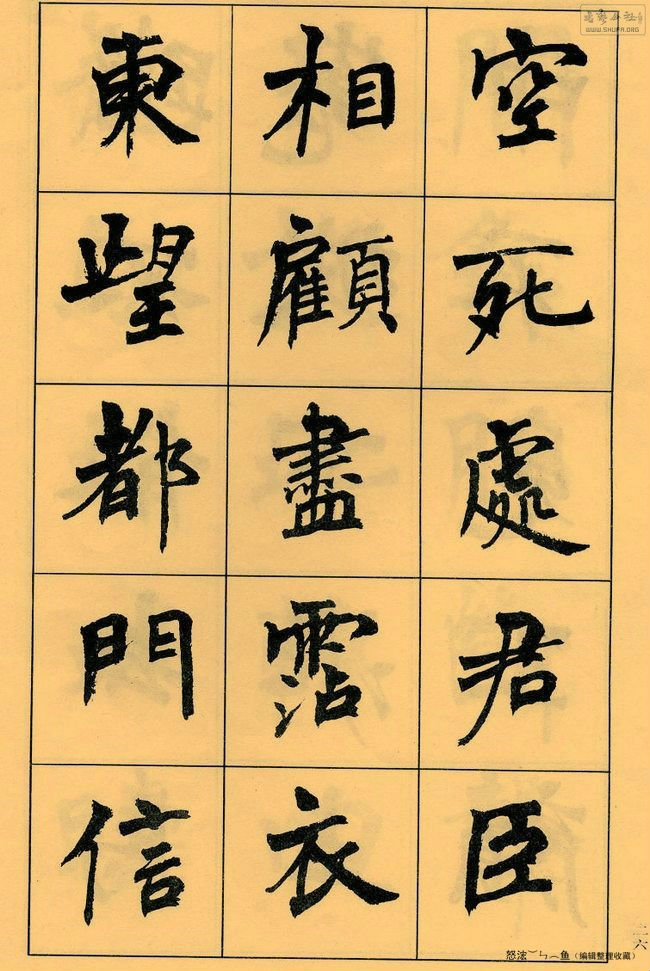 空死處君臣
相顧盡霑衣
東望都門信
WWW.SHUFA.ORG
二六
（编辑整理收藏）